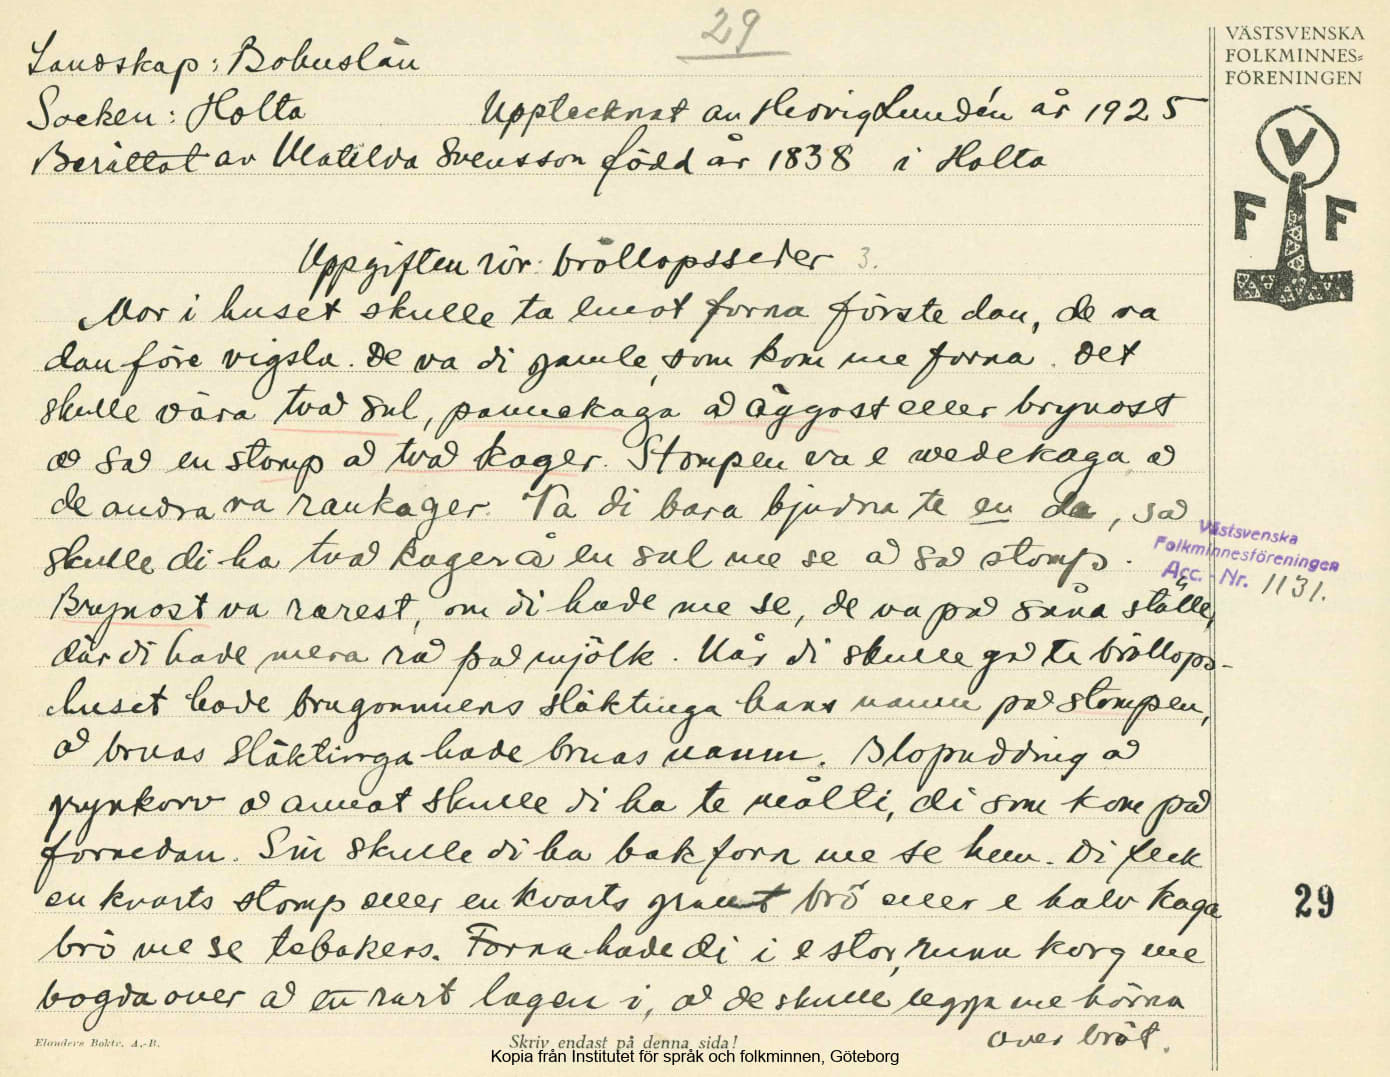 29
VÄSTSVENSKA
FOLKMINNES=
FÖRENINGEN
V
F F
Landskap: Bohuslän
Socken: Holta Upptecknat av Hedvig Lundén år 1925
Berättat av Matilda Svensson född år 1838 i Holta
Uppgiften rör: bröllopsseder 3.
Mor i huset skulle ta emot forna förste dan, de va
dan före vigsla. De va di gamle, som kom me forna. Det
skulle våra två sul, pannekaga å äggost eller brynost
å så en stomp å två kager. Stompen va e vedekaga å
de andra va rankager. Va di bara bjudna te en da, så
skulle di ha två kager å en sul me se å så stomp.
Brynost va rarest, om di hade me se, de va på såna ställe,
där di hade mera rå på mjölk. Når di skulle gå te bröllops-
huset hade brugommens släktinga hans namn på stompen,
å bruas släktinga hade bruas namn. Blopudding å
grynkorv å annat skulle di ha te målti, di som kom på
fornedan. Sin skulle di ha bakforn me se hem. Di feck
en kvarts stomp eller en kvarts grant brö eller e halv kaga
brö me se tebakers. Forna hade di i e stor, runn korg me
bogda over å ett rart lagen i, å de skulle legga me hörna
over bröt.
Västsvenska
Folkminnesföreningen
Acc. - Nr. 1131.
29
Elanders Boktr. A.-B.
Skriv endast på denna sida!
Kopia från Institutet för språk och folkminnen, Göteborg